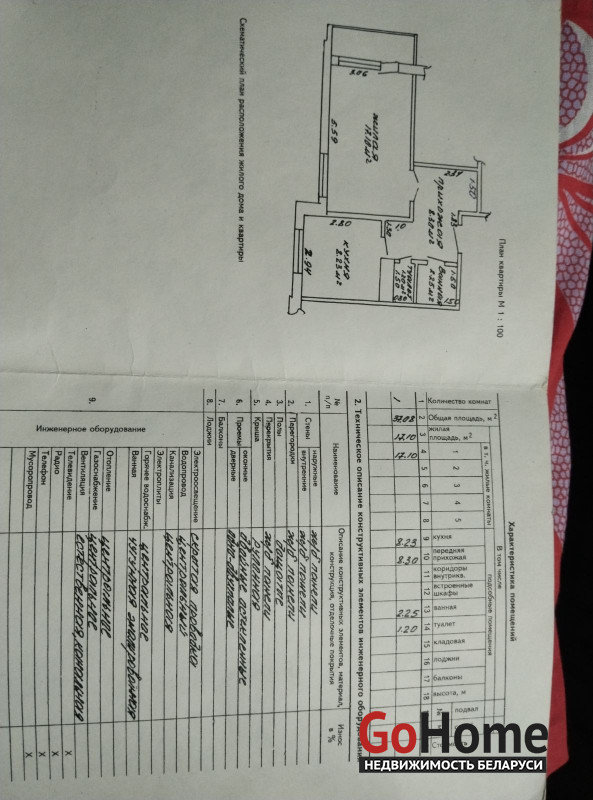 План квартиры М 1 : 100
жилая
17.10 м²
3.06
5.59
прихожая
8.30 м²
1.50
1.83
1.0
кухня
8.23 м²
2.80
2.94
туалет
1.20 м²
1.50
ванная
2.25 м²
1.50
1.50
Схематический план расположения жилого дома и квартиры
Характеристика помещений
Количество комнат
Общая площадь, м²
жилая площадь, м²
в т. ч. жилые комнаты
В том числе
подсобные помещения
кухня
передняя прихожая
коридоры внутрикв.
встроенные шкафы
ванная
туалет
кладовая
лоджии
балконы
высота, м
подвал
№
1 2 3 4 5 6 7 8 9 10 11 12 13 14 15 16 17 18
1 2 3 4 5
1 37.08 17.10 17.10 8.23 8.30 2.25 1.20
2. Техническое описание конструктивных элементов инженерного оборудования
№ п/п
Наименование
Описание конструктивных элементов, материал, конструкция, отделочные покрытия
Износ в %
1. Стены наружные ж/б панели
внутренние ж/б панели
2. Перегородки ж/б панели
3. Полы дощатые
4. Перекрытия ж/б панели
5. Крыша рулонная
6. Проемы оконные
дверные
7. Балконы
8. Лоджии
9. Инженерное оборудование
Электроосвещение скрытая проводка
Водопровод центральный
Канализация центральная
Электроплиты
Горячее водоснабж. центральное
Ванная чугунная эмалированная
Отопление центральное
Газоснабжение центральное
Вентиляция естественная
Телевидение х
Радио х
Телефон х
Мусоропровод х
GoHome
НЕДВИЖИМОСТЬ БЕЛАРУСИ